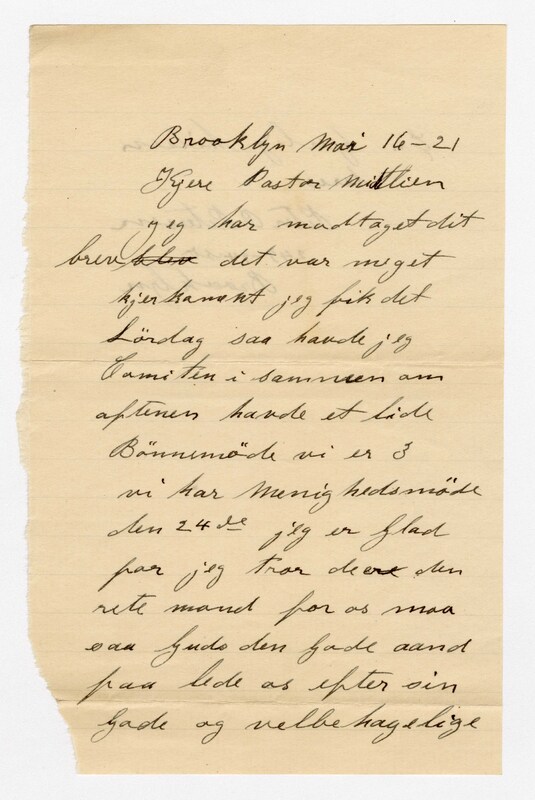 Brooklyn Mai 16-21
Kjere Pastor
jeg har modtaget dit
brev blev det var meget
kjerkommt jeg fik det
Lördag saa havde jeg
Comiten i sammen om
aftenen havde et lide
Bönnemöde vi er 3
vi har Menighedsmöde
den 24de jeg er Glad
for jeg tror de er den
rete mand for os maa
saa Guds den Gode aand
faa lede os efter sin
Gode og velbehagelige